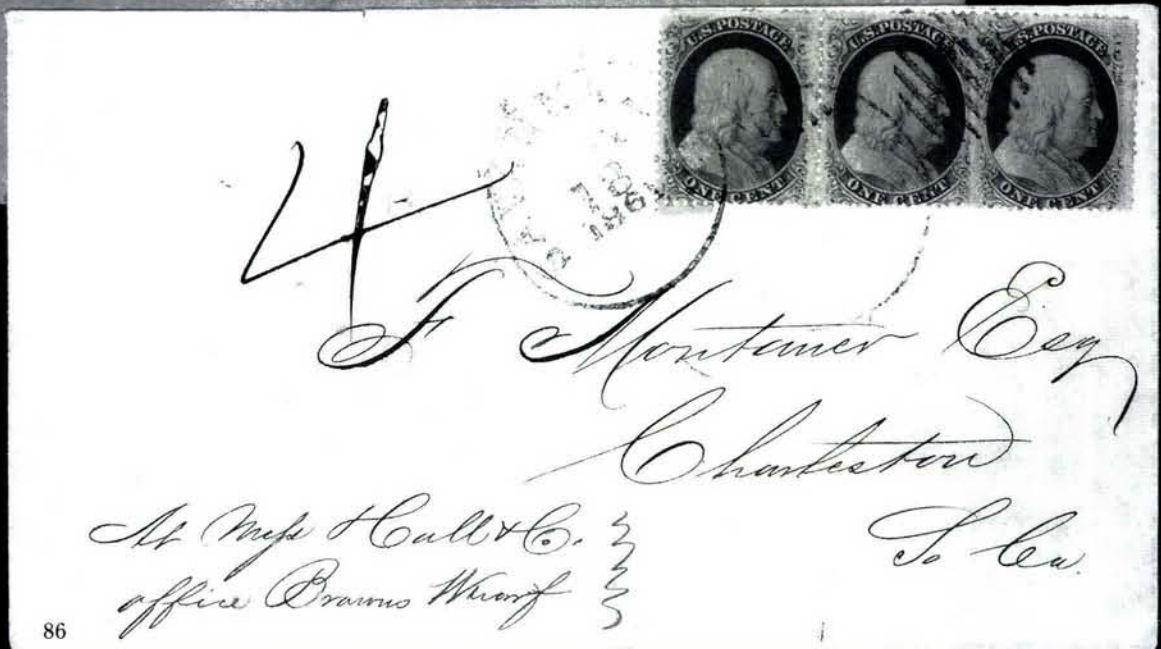 U.S. POSTAGE U.S. POSTAGE U.S. POSTAGE
ONE CENT ONE CENT ONE CENT
4
F Montaner Esq
Charleston
So Ca.
At Mess Hall & Co.
office Browns Wharf
86